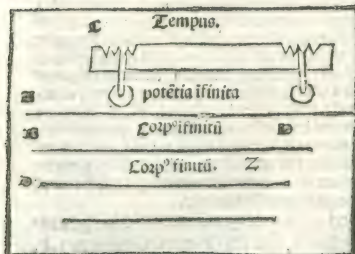 C Tempus.
A potētia īfinita
B Corpꝰ īfinitū D
D Corpꝰ finitū. Z